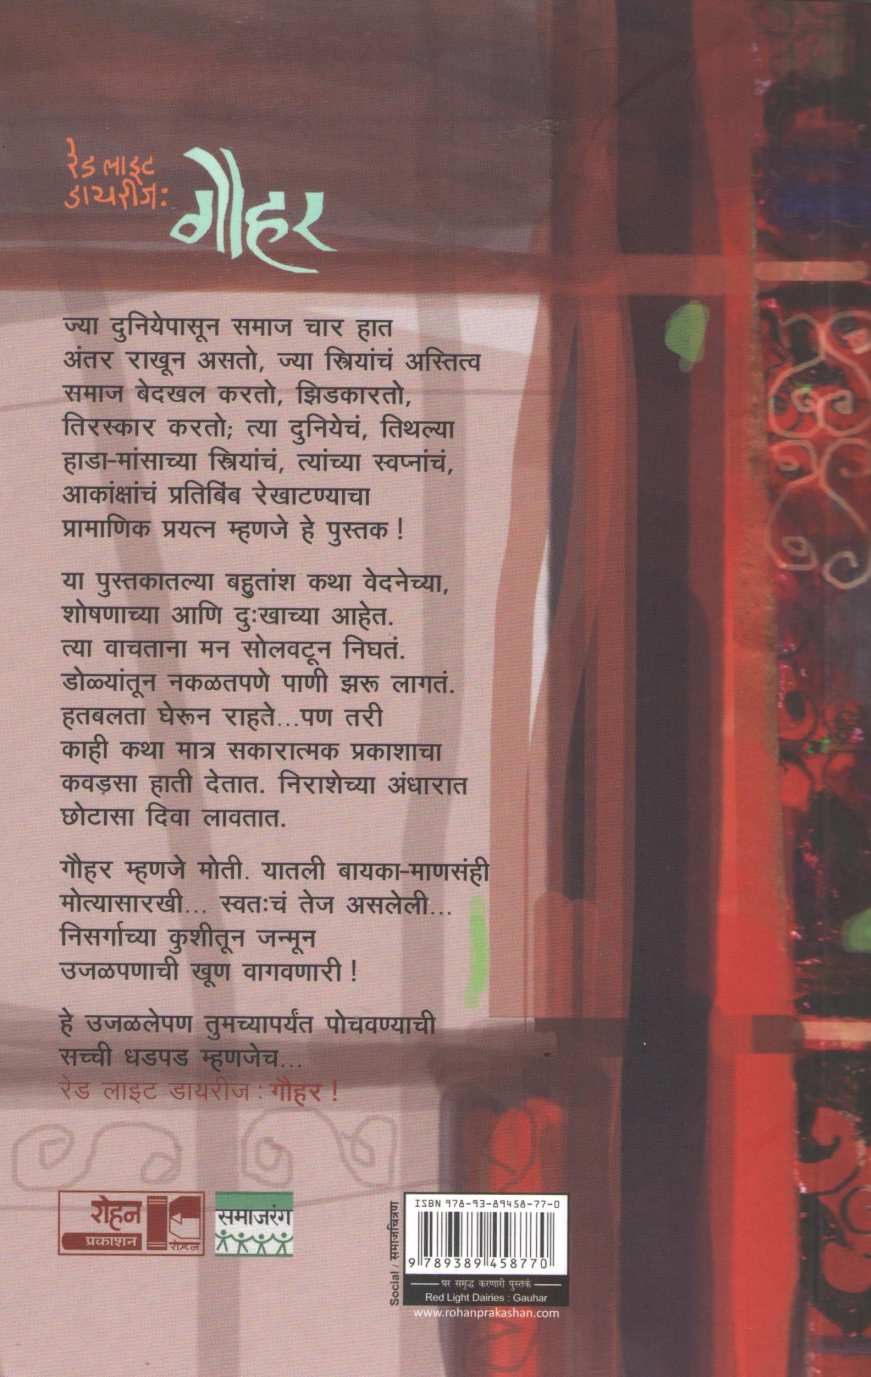 रेड लाइट
डायरीज:
गौहर
ज्या दुनियेपासून समाज चार हात
अंतर राखून असतो, ज्या स्त्रियांचं अस्तित्व
समाज बेदखल करतो, झिडकारतो,
तिरस्कार करतो; त्या दुनियेचं, तिथल्या
हाडा-मांसाच्या स्त्रियांचं, त्यांच्या स्वप्नांचं,
आकांक्षांचं प्रतिबिंब रेखाटण्याचा
प्रामाणिक प्रयत्न म्हणजे हे पुस्तक !
या पुस्तकातल्या बहुतांश कथा वेदनेच्या,
शोषणाच्या आणि दुःखाच्या आहेत.
त्या वाचताना मन सोलवटून निघतं.
डोळ्यांतून नकळतपणे पाणी झरू लागतं.
हतबलता घेरून राहते...पण तरी
काही कथा मात्र सकारात्मक प्रकाशाचा
कवड़सा हाती देतात. निराशेच्या अंधारात
छोटासा दिवा लावतात.
गौहर म्हणजे मोती. यातली बायका-माणसंही
मोत्यासारखी... स्वतःचं तेज असलेली...
निसर्गाच्या कुशीतून जन्मून
उजळपणाची खूण वागवणारी !
हे उजळलेपण तुमच्यापर्यंत पोचवण्याची
सच्ची धडपड म्हणजेच...
रेड लाइट डायरीज : गौहर !
रोहन
प्रकाशन
रोहन
समाजरंग
Social / समाजचित्रण
ISBN 978-93-89458-77-0
9 789389 458770
घर समृद्ध करणारी पुस्तकं
Red Light Dairies : Gauhar
www.rohanprakashan.com